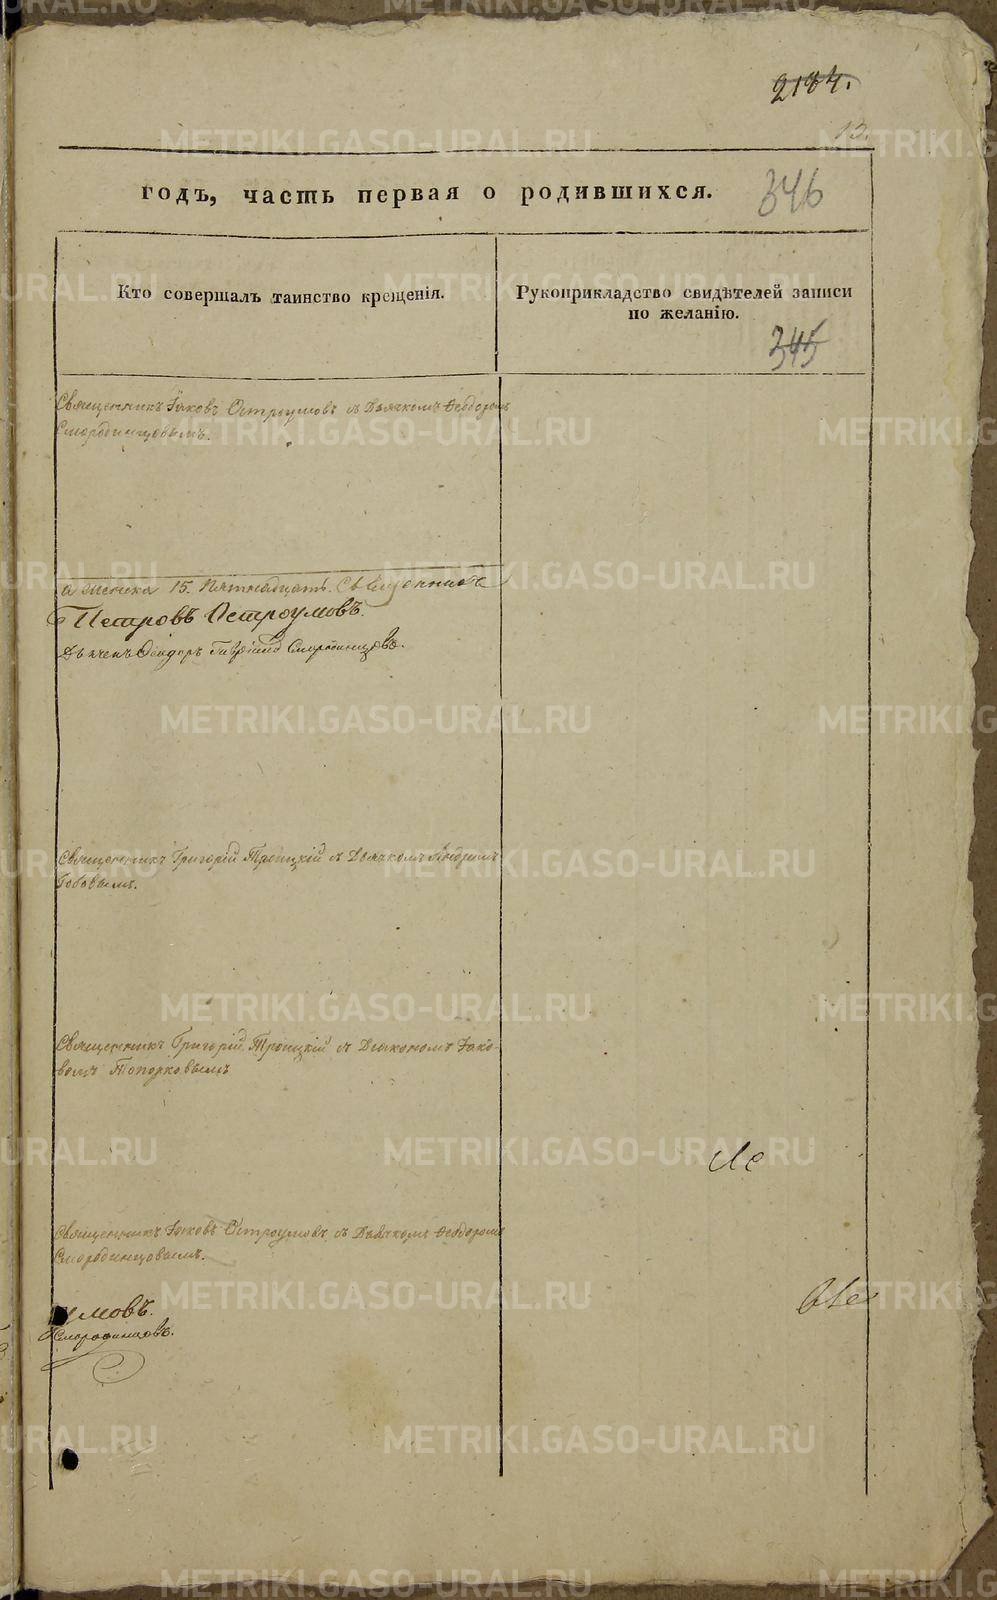 2184.
13.
годъ, часть первая о родившихся.
346
Кто совершалъ таинство крещенія.
Рукоприкладство свидѣтелей записи
по желанію.
345
Священникъ Іаковъ Остроумовъ съ Дьячкомъ Ѳеодоромъ
Смородинцовымъ.
а женска 15. Пятнадцать. Священникъ
Петровъ Остроумовъ.
Смородинцовъ.
Священникъ Григорій Троицкій съ Дьячкомъ Андреемъ
Священникъ Григорій Троицкій съ Діакономъ Іако-
вомъ Топорковымъ
Священникъ Іаковъ Остроумовъ съ Дьячкомъ Ѳеодоромъ
Смородинцовымъ.
умовъ.
Смородинцовъ.
METRIKI.GASO-URAL.RU